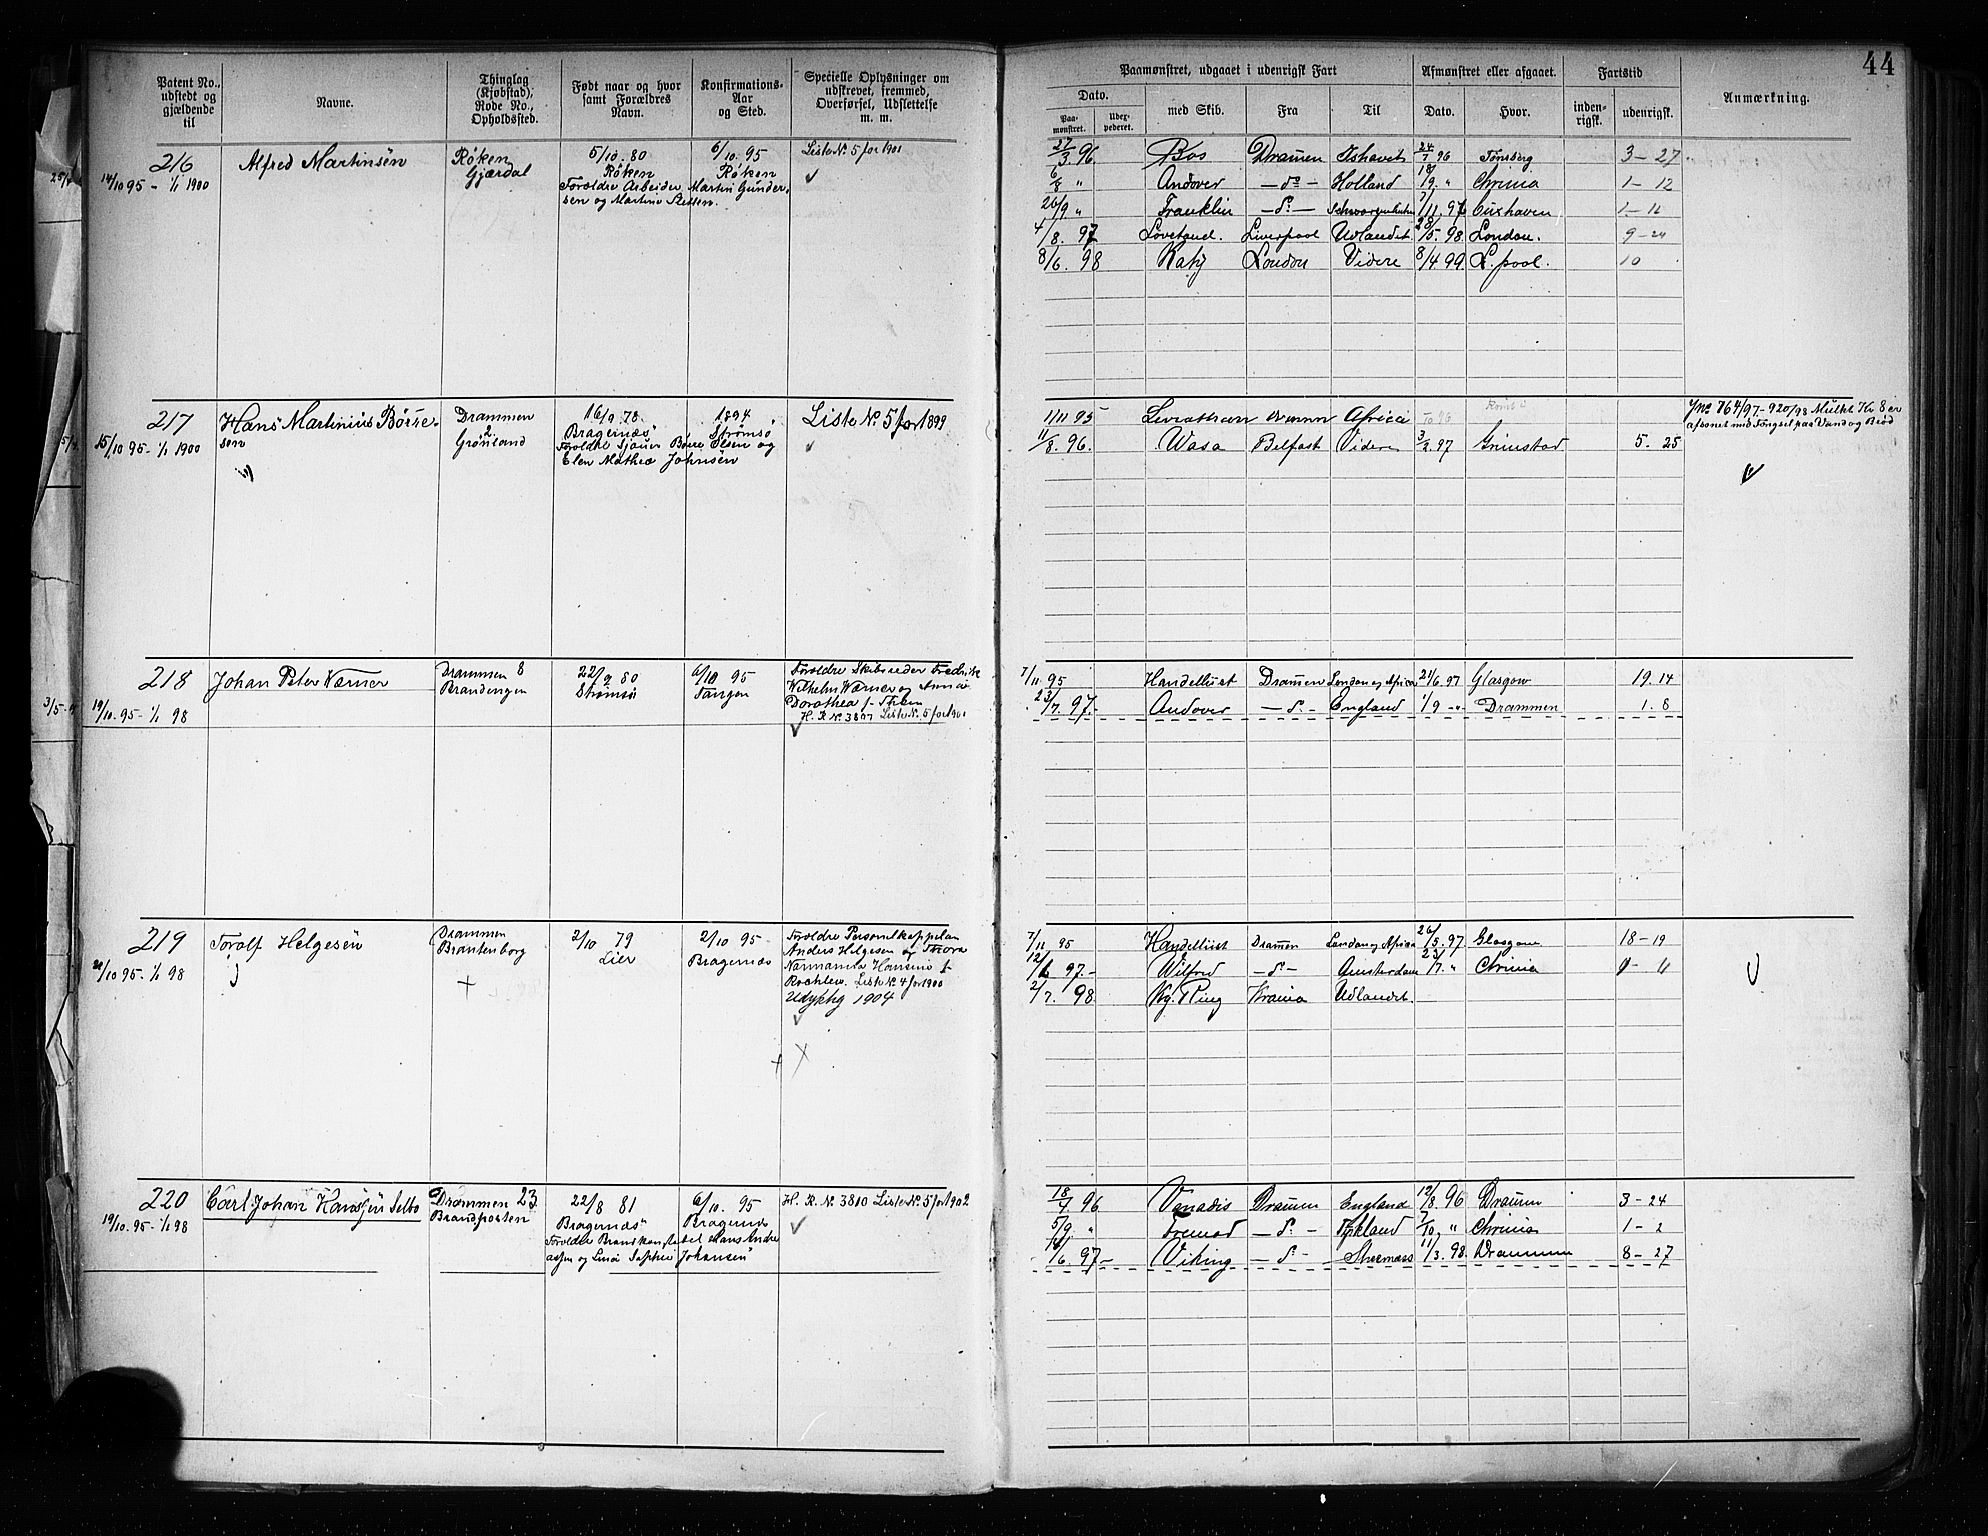 44
Patent No., udstedt og gjældende til
Navne.
Thinglag (Kjøbstad), Rode No., Opholdssted.
Født naar og hvor samt Forældres Navn.
Konfirmations-Aar og Sted.
Specielle Oplysninger om udskrevet, fremmed, Overførsel, Udslettelse m. m.
Paamønstret, udgaaet i udenrigsk Fart
Afmønstret eller afgaaet.
Fartstid
Anmærkning.
Dato.
Paa-mønstret.
Udex-pederet.
med Skib.
Fra
Til
Dato.
Hvor.
inden-rigsk.
udenrigsk.
216 Alfred Martinsen Røken 5/10.80 6/10.95 Liste No. 5 for 1901
14/10 95 - 1/1 1900 Gjærdal Røken Røken
Foræld­re Arbeider Martin Gunder-
sen og Martine
27/3 96 Bos Dramen Ishavet 24/7 96 Tønsberg 3-27
6/8 " Andover - do - Holland 18/9 " Chrinia 1-12
26/9 " Franklin - do - 7/11.97 Cuxhaven 1-11
4/8.97 Lovstand. Liverpool Udlandet 28/5.98 London. 9-24
8/6.98 Katy London Videre 8/4 99 L.pool. 10
217 Hans Martinius Børre- Drammen 16/9.78. 1894 Liste No. 5 for 1899
15/10 95 - 1/1 1900 sen 2 Grønland Bragernæs Strømsø
Forældre Sjauer Børre Olsen og
Elen Mathea Johnsen
1/11 95 Africa
11/8.96. Wasa Belfast Videre 3/2.97 Grimstad 5. 25
Jno 764/97 - 920/98 Mulkt Kr 8 er
afsonet med Fængsel paa Vand og Brød
218 Johan Peter Værner Drammen 8 22/9 80 6/10 95 Forældre Skibsreder Fredrik
19/10.95 - 1/1 98 Brandengen Strømsø Tangen Wilhelm Værner og Anna
Dorothea f. Them
H. R. No. 3807 Liste No. 5 for 1901
7/11 95 Handellust Dramen London og Africa 21/6.97 Glasgow 19.14
23/7.97- Andover - do - England 1/9 - " Drammen 1.8
219 Toralf Helgesen Drammen 2/10 79 2/10 95 Forældre Personelkappelan
20/10 95 - 1/1 98 Brantenborg Lier Bragernæs Anders Helgesen og Thora
Nannanna Hansine f.
Liste No. 4 for 1900
1904
7/11 95 Handellust Dramen London og Africa 26/5.97 Glasgow 18-19
12/6 97- Wilford - do - Amsterdam 23/7. " Chrinia 1-11
2/7.98 Kg. Ring Krania Udlandet.
220 Carl Johan Hanssen Selbo Drammen 23 22/8 81 6/10.95 H. R. No. 3810 Liste No. 5 for 1902
19/10.95 - 1/1 98 Brandposten Bragernæs Bragernæs
Forældre Brandkonstabel Hans Andre-
asen og Lina Sophie Johansen
18/4 96 Vanadis Dramen England 12/8.96 Dramen 3-24
5/9 " Fremad - do - Tyskland 7/10 " Chrinia 1-2
/6.97- Viking - do - 11/3.98 Drammen 8-27